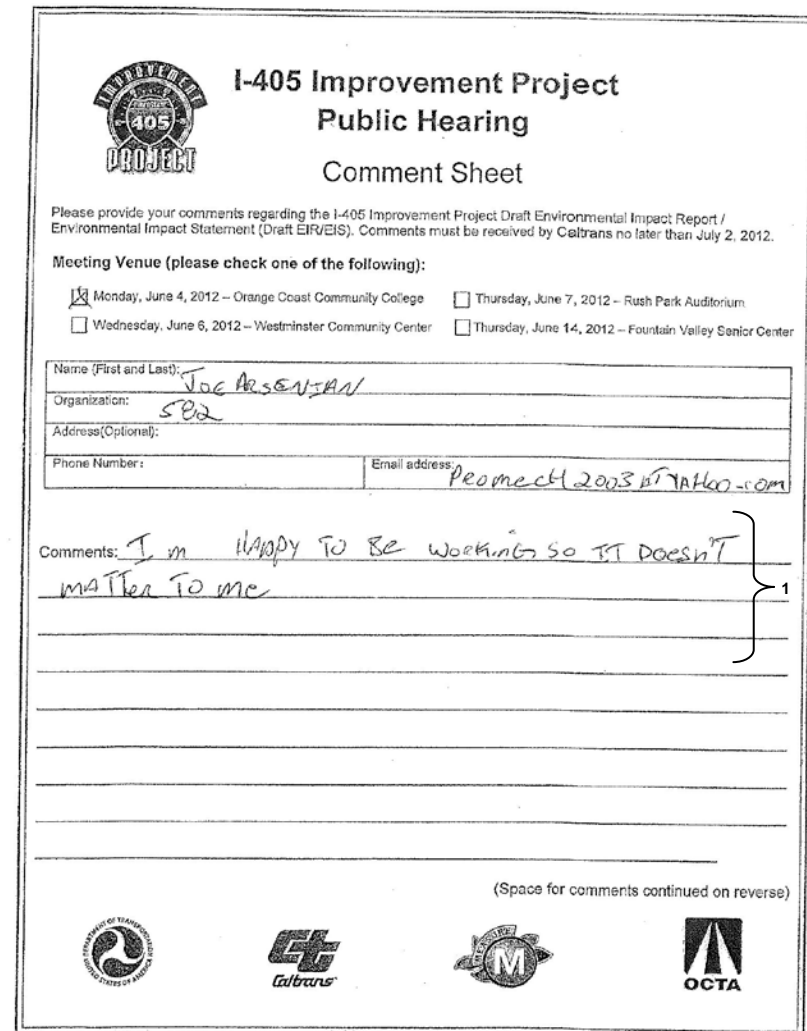 IMPROVEMENT
405
PROJECT
I-405 Improvement Project
Public Hearing
Comment Sheet
Please provide your comments regarding the I-405 Improvement Project Draft Environmental Impact Report /
Environmental Impact Statement (Draft EIR/EIS). Comments must be received by Caltrans no later than July 2, 2012.
Meeting Venue (please check one of the following):
Monday, June 4, 2012 – Orange Coast Community College
Thursday, June 7, 2012 – Rush Park Auditorium
Wednesday, June 6, 2012 – Westminster Community Center
Thursday, June 14, 2012 – Fountain Valley Senior Center
Name (First and Last): JOE ARSENIAN
Organization: 582
Address(Optional):
Phone Number:
Email address: Promech 2003 AT YAHOO.com
Comments: I m HAPPY TO BE WORKING SO IT DOESN'T
MATTER TO ME
1
(Space for comments continued on reverse)
DEPARTMENT OF TRANSPORTATION
UNITED STATES OF AMERICA
Caltrans
MEASURE
M
OCTA